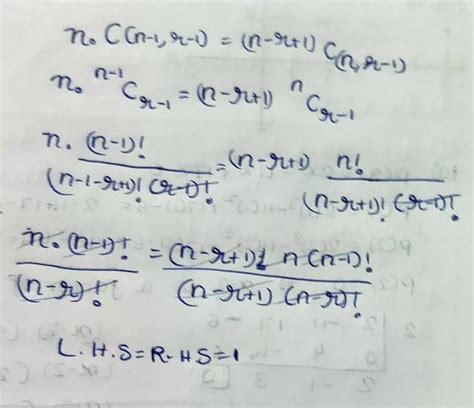 n. C(n-1, r-1) = (n-r+1) C(n, r-1)
n. ⁿ⁻¹Cᵣ₋₁ = (n-r+1) ⁿCᵣ₋₁
n. (n-1)! / (n-1-r+1)! (r-1)! = (n-r+1) n! / (n-r+1)! (r-1)!
n. (n-1)! / (n-r)! = (n-r+1) n (n-1)! / (n-r+1) (n-r)!
L.H.S = R.HS = 1